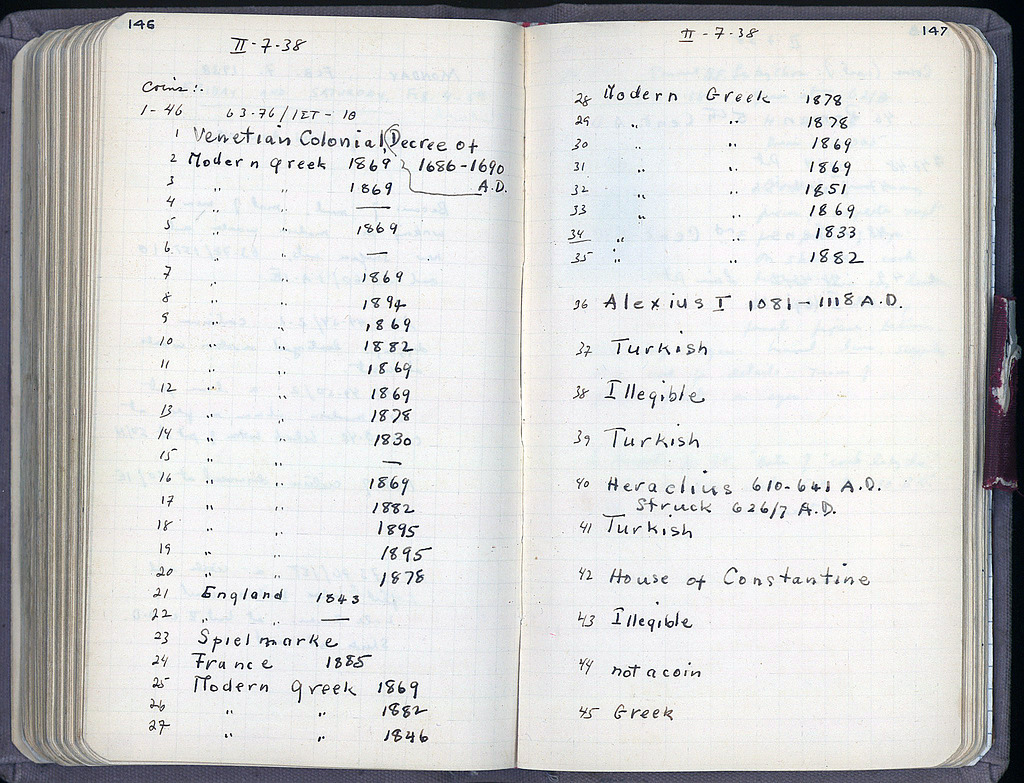 146
II-7-38
Coins:.
1-46 63-76/IET-10
1 Venetian Colonial, Decree of
1686-1690
A.D.
2 Modern greek 1869
3 " " 1869
4 " " —
5 " " 1869
6 " " —
7 " " 1869
8 " " 1894
9 " " 1869
10 " " 1882
11 " " 1869
12 " " 1869
13 " " 1878
14 " " 1830
15 " " —
16 " " 1869
17 " " 1882
18 " " 1895
19 " " 1895
20 " " 1878
21 England 1843
22 " " —
23 Spielmarke
24 France 1885
25 Modern greek 1869
26 " " 1882
27 " " 1846
147
II-7-38
28 Modern Greek 1878
29 " " 1878
30 " " 1869
31 " " 1869
32 " " 1851
33 " " 1869
34 " " 1833
35 " " 1882
36 Alexius I 1081-1118 A.D.
37 Turkish
38 Illegible
39 Turkish
40 Heraclius 610-641 A.D.
Struck 626/7 A.D.
41 Turkish
42 House of Constantine
43 Illegible
44 not a coin
45 Greek